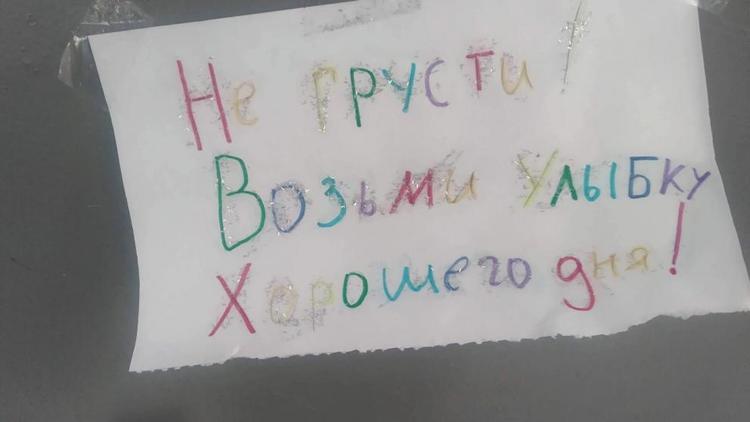 Не грусти!
Возьми улыбку
Хорошего дня!